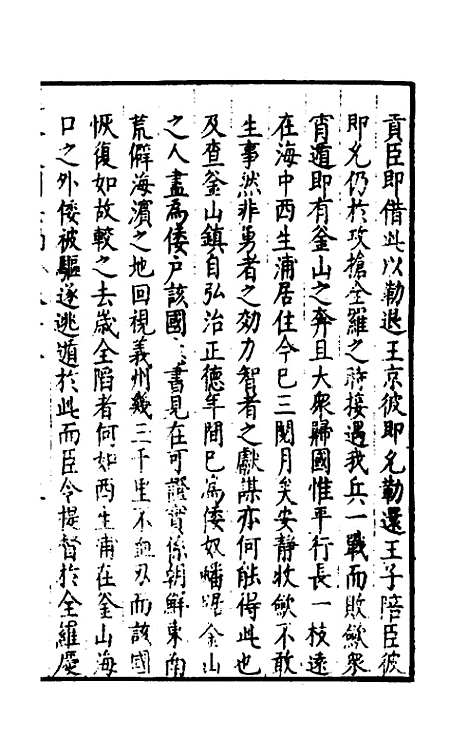 貢臣即借此以勒退王京彼即允勒還王子陪臣彼
即允仍於攻搶全羅之時接遇我兵一戰而敗歛衆
宵遁即有釜山之奔且大衆歸國惟平行長一枝遠
在海中西生浦居住今已三閱月矣安靜收歛不敢
生事然非勇者之効力智者之獻謀亦何能得此也
及查釜山鎮自弘治正德年間已爲倭奴蟠踞釜山
之人盡爲倭户該國書見在可證實係朝鮮東南
荒僻海濵之地回視義州幾三千里不血刃而該國
恢復如故較之去歲全陷者何如西生浦在釜山海
口之外倭被驅遂逃遁於此而臣令提督於全羅慶